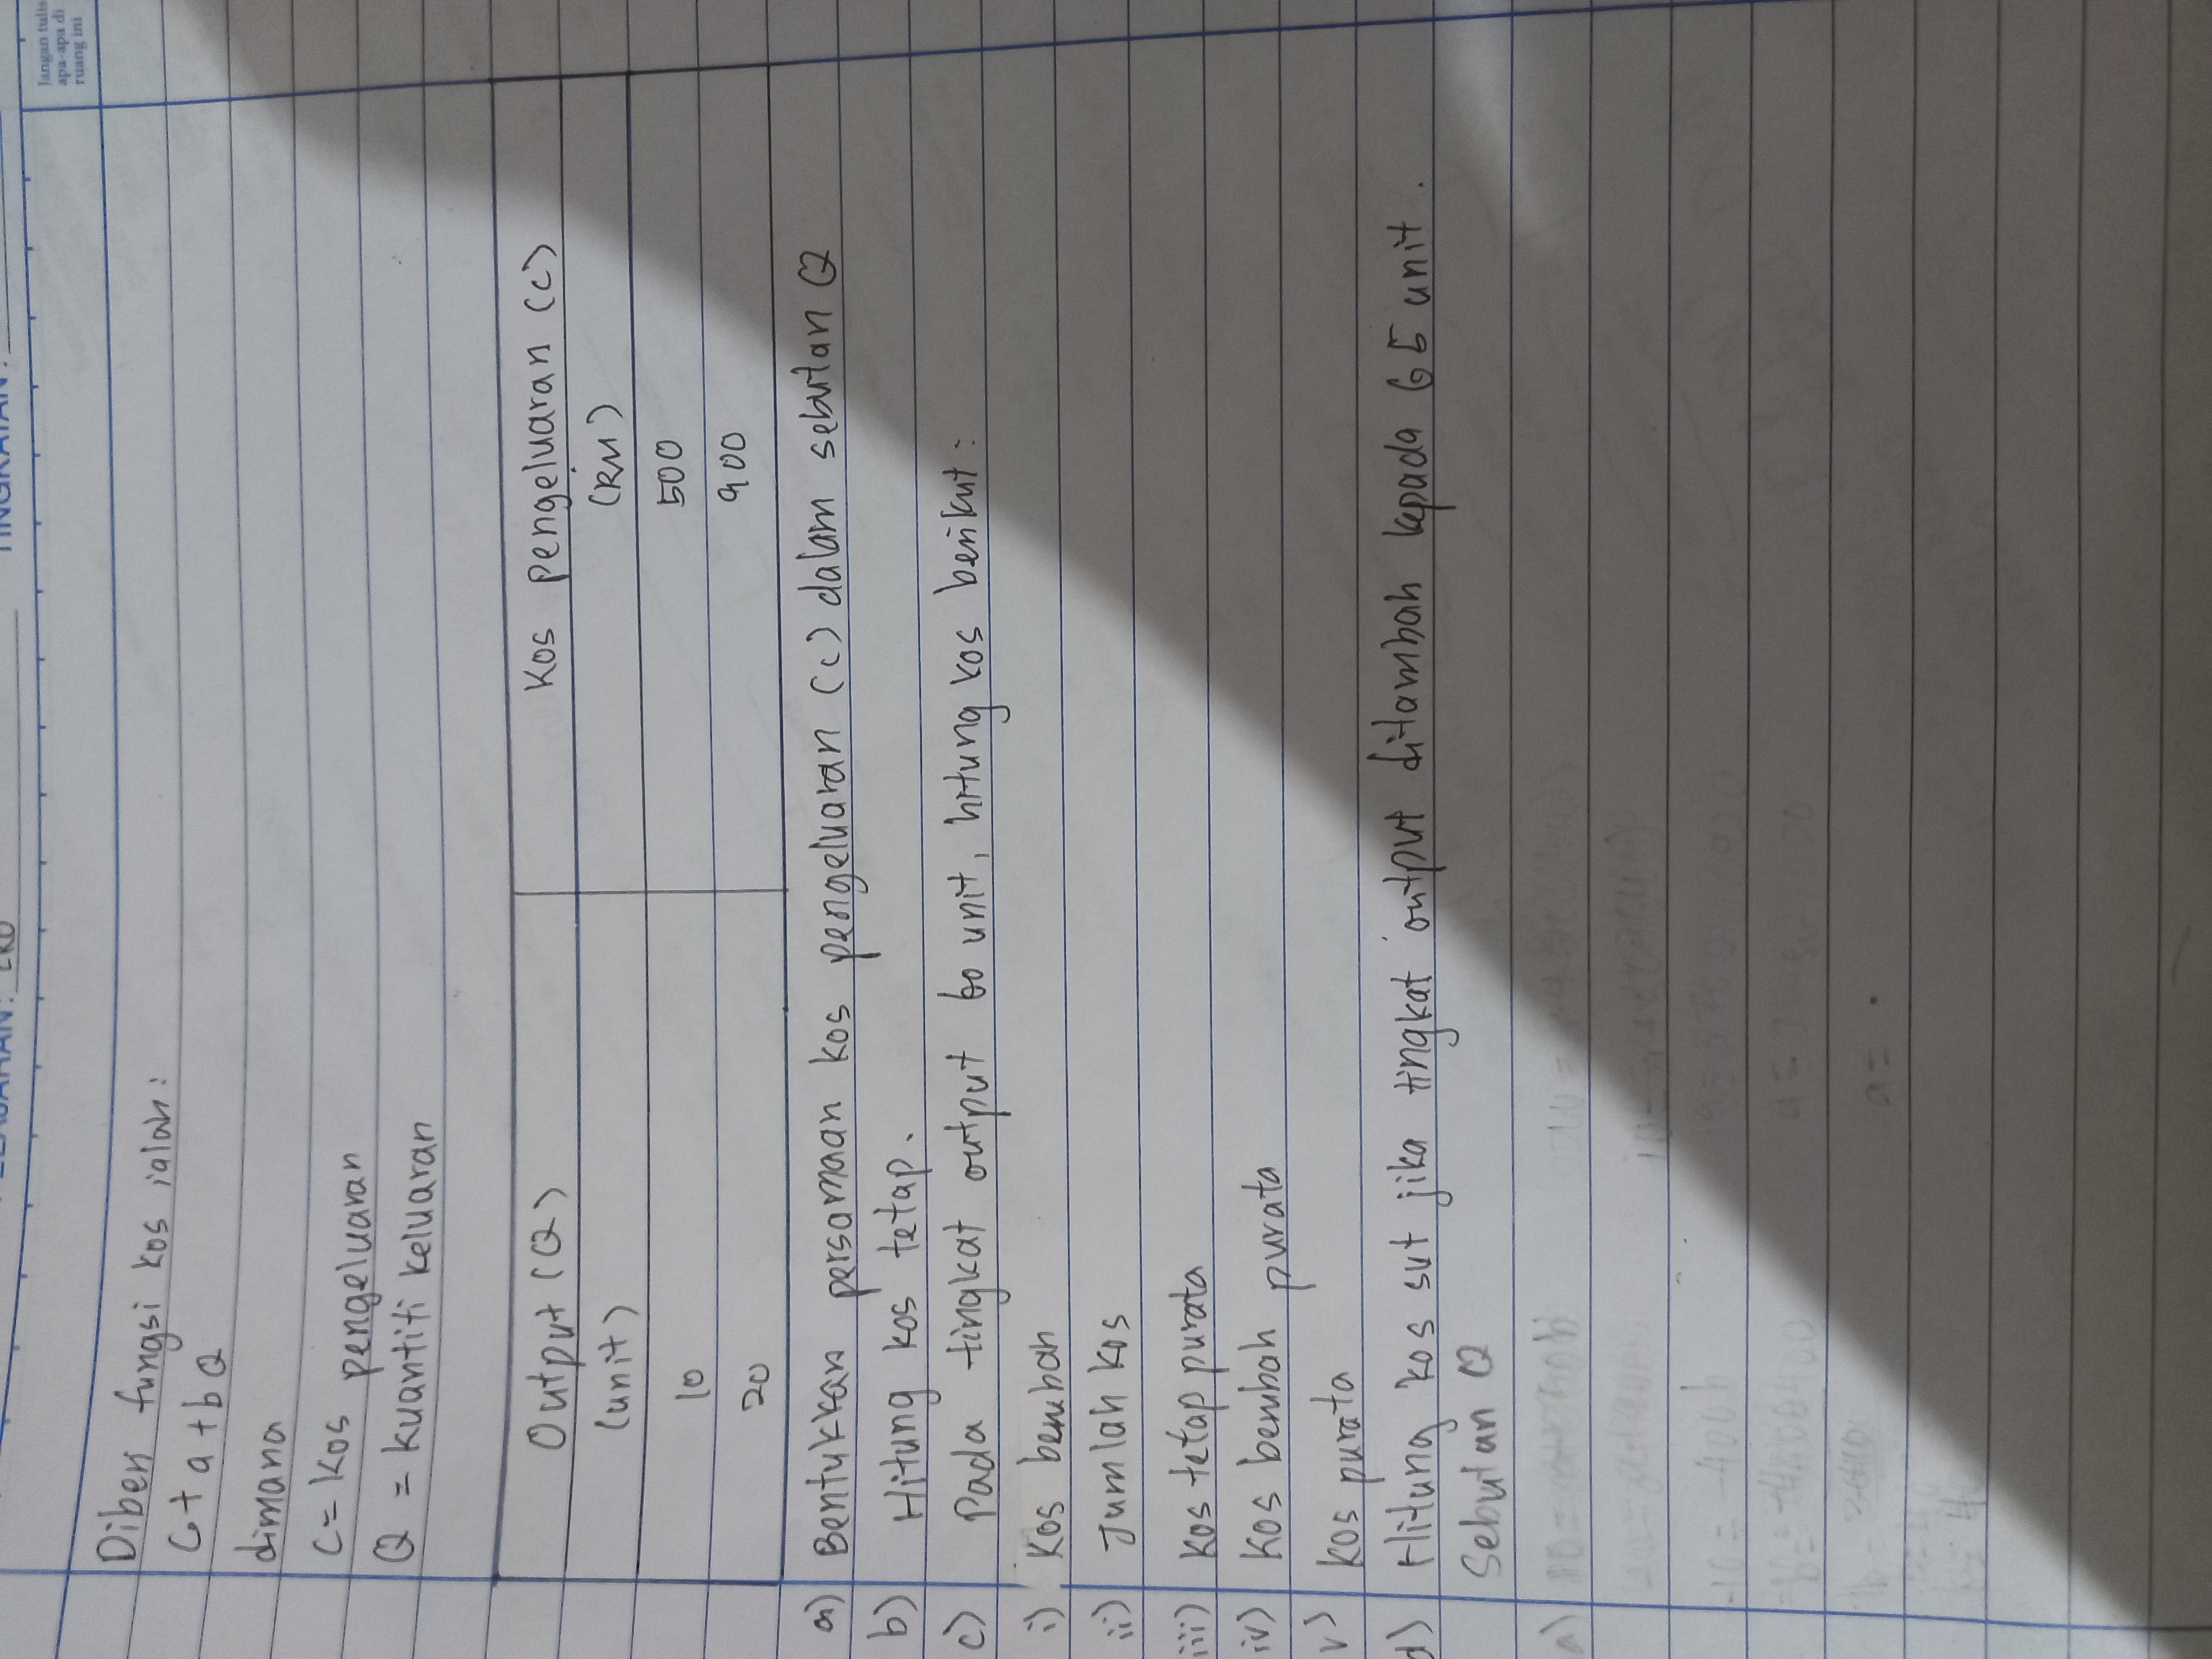 PELAJARAN: EKO TINGKATAN:
Jangan tulis
apa-apa di
ruang ini
Diberi fungsi kos ialah:
C + a + b Q
dimana
C = Kos pengeluaran
Q = kuantiti keluaran
Output (Q) Kos pengeluaran (c)
(unit) (RM)
10 500
20 900
a) Bentukkan persamaan kos pengeluaran (c) dalam sebutan Q
b) Hitung kos tetap.
c) Pada tingkat output 60 unit, hitung kos berikut:
i) Kos berubah
ii) Jumlah kos
iii) Kos tetap purata
iv) Kos berubah purata
v) Kos purata
d) Hitung kos sut jika tingkat output ditambah kepada 65 unit.
Sebutan Q
a)
-10 = -400b
a =